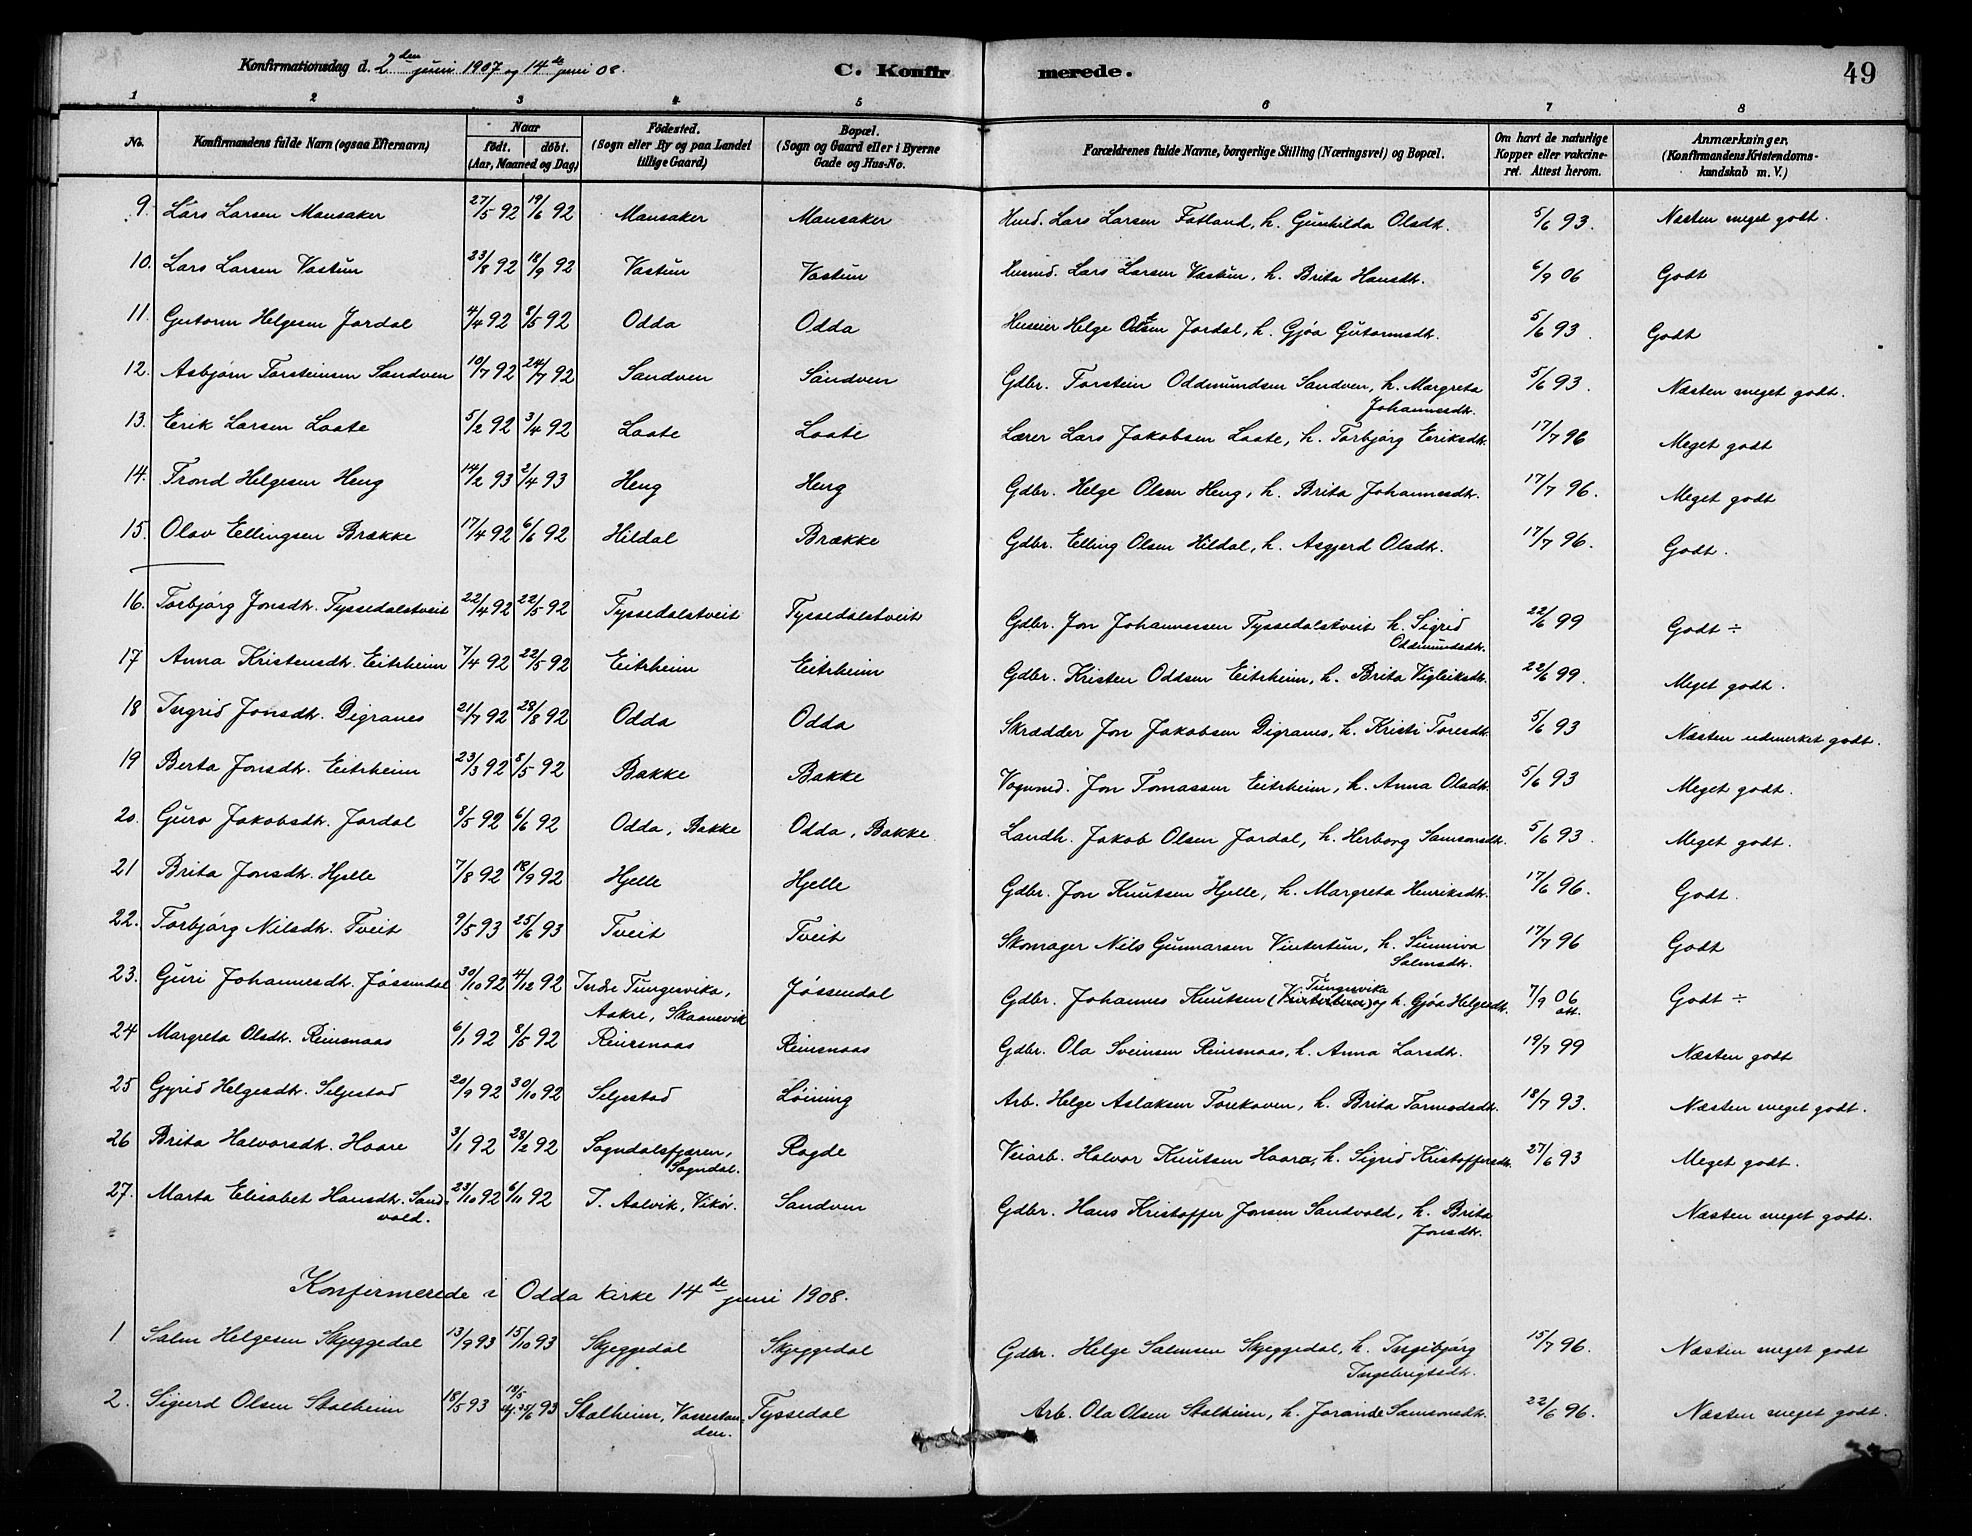 Konfirmationsdag d. 2den juni 1907 og 14de juni 08.
C. Konfirmerede.
49
1 2 3 4 5 6 7 8
No. Konfirmandens fulde Navn (ogsaa Efternavn) Naar født. døbt. (Aar, Maaned og Dag) Fødested. (Sogn eller By og paa Landet tillige Gaard) Bopæl. (Sogn og Gaard eller i Byerne Gade og Hus-No. Forældrenes fulde Navne, borgerlige Stilling (Næringsvei) og Bopæl. Om havt de naturlige Kopper eller vakcineret. Attest herom. Anmærkninger. (Konfirmandens Kristendomskundskab m. V.)
9. Lars Larsen Mansaker 27/5 92 19/6 92 Mansaker Mansaker Husd. Lars Larsen Fatland, h. Gunhilda Olsdt. 5/6 93. Næsten meget godt.
10. Lars Larsen Vastun 23/8 92 18/9 92 Vastun Vastun Husmd. Lars Larsen Vastun, h. Brita Hansdt. 6/9 06 Godt
11. Gutorm Helgesen Jordal 4/4 92 8/5 92 Odda Odda Huseier Helge Olsen Jordal, h. Gjøa Gutormsdt. 5/6 93. Godt
12. Asbjørn Torsteinsen Sandven 10/7 92 24/7 92 Sandven Sandven Gdbr. Torstein Oddmundsen Sandven, h. Margreta Johannesdt. 5/6 93. Næsten meget godt.
13. Erik Larsen Laate 5/2 92 3/4 92 Laate Laate Lærer Lars Jakobsen Laate, h. Torbjørg Eriksdt. 17/7 96 Meget godt
14. Trond Helgesen Heng 14/2 93 2/4 93 Heng Heng Gdbr. Helge Olsen Heng, h. Brita Johannesdt. 17/7 96. Meget godt
15. Olav Ellingsen Brække 17/4 92 6/6 92 Hildal Brække Gdbr. Elling Olsen Hildal, h. Asgjerd Olsdt. 17/7 96. Godt.
16. Torbjørg Jonsdt. Tyssedalstveit 22/4 92 22/5 92 Tyssedalstveit Tyssedalstveit Gdbr. Jon Johannessen Tyssedalstveit h. Sigrid Oddmundsdt. 22/6 99 Godt ÷
17 Anna Kristensdt. Eitrheim 7/4 92 22/5 92 Eitrheim Eitrheim Gdbr. Kristen Oddsen Eitrheim, h. Brita Vigleiksdt. 22/6 99. Meget godt.
18 Ingrid Jonsdt. Digranes 21/7 92 28/8 92 Odda Odda Skrædder Jon Jakobsen Digranes, h. Kristi Toresdt. 5/6 93 Næsten udmerket godt.
19 Berta Jonsdt. Eitrheim 23/3 92 8/5 92 Bakke Bakke Vognmd. Jon Tomassen Eitrheim, h. Anna Olsdt. 5/6 93 Meget godt.
20. Guro Jakobsdt. Jordal 8/5 92 6/6 92 Odda, Bakke Odda, Bakke. Landh. Jakob Olsen Jordal, h. Herborg Samsonsdt. 5/6 93. Meget godt.
21 Brita Jonsdt. Hjelle 7/8 92 18/9 92 Hjelle Hjelle Gdbr. Jon Knutsen Hjelle, h. Margreta Henriksdt. 17/6 96. Godt.
22. Torbjørg Nilsdt. Tveit 9/5 93 25/6 93 Tveit Tveit Skomager Nils Gunnarsen Vintertun, h. Sunniva Salmsdt. 17/7 96 Godt
23. Guri Johannesdt. Jøssendal 30/10 92 4/12 92 Indre Tungesvika, Aakre, Skaanevik Jøssendal Gdbr. Johannes Knutsen Tungesvika og h. Gjøa Helgesdt. 7/9 06 att. Godt ÷
24 Margreta Olsdt. Reinsnaas 6/1 92 8/5 92 Reinsnaas Reinsnaas Gdbr. Ola Sveinsen Reinsnaas, h. Anna Larsdt. 19/7 99 Næsten godt
25 Gyrid Helgesdt. Seljestad 20/9 92 30/10 92 Seljestad Løining Arb. Helge Aslaksen Torekoven, h. Brita Tormodsdt. 18/7 93. Næsten meget godt.
26 Brita Halvorsdt. Haare 3/1 92 28/2 92 Sogndalsfjæren, Sogndal. Ragde Veiarb. Halvor Knutsen Haara, h. Sigrid Kristoffersdt. 27/6 93 Meget godt.
27. Marta Elisabet Hansdt. Sandvold. 23/10 92 6/11 92 I. Aalvik, Vikør. Sandven Gdbr. Hans Kristoffer Jonsen Sandvold, h. Brita Jonsdt. Næsten meget godt.
Konfirmerede i Odda kirke 14de juni 1908.
1 Salm Helgesen Skjeggedal 13/9 93 15/10 93 Skjeggedal Skjeggedal Gdbr. Helge Salmsen Skjeggedal, h. Ingebjørg Ingebrigtsdt. 15/7 96. Næsten meget godt
2. Sigurd Olsen Stalheim 18/5 93 18/5 25/6 93 Stalheim, Vossestranden. Tyssedal Arb. Ola Olsen Stalheim, h. Jorande Samsonsdt. 22/6 96. Næsten meget godt.